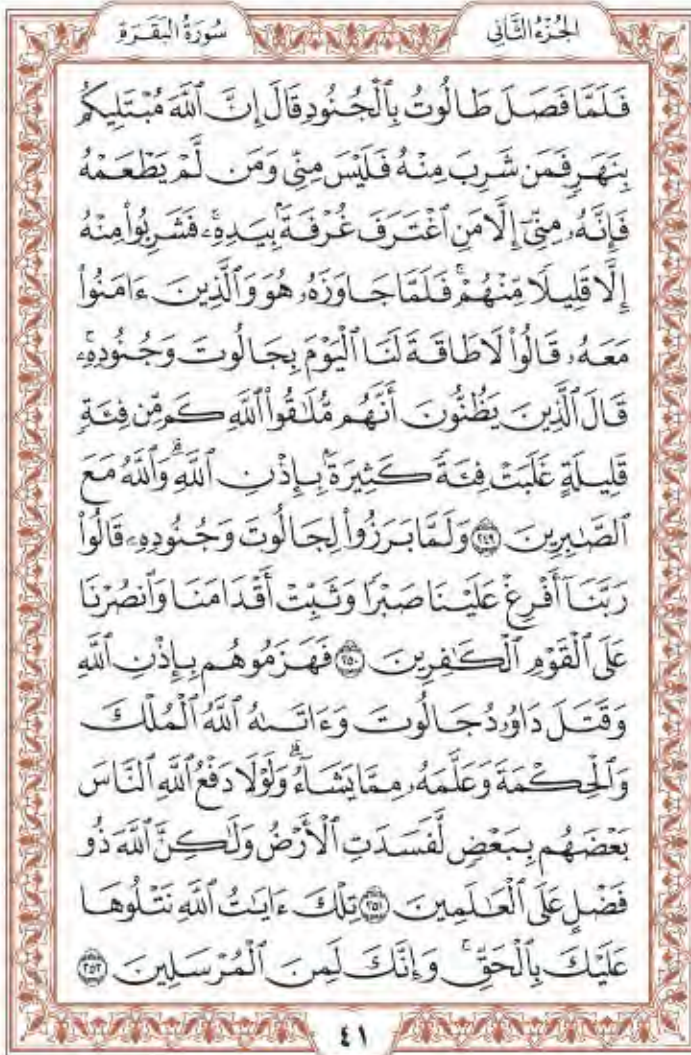 الجُزْءُ الثَّانِي
سُورَةُ البَقَرَةِ
فَلَمَّا فَصَلَ طَالُوتُ بِٱلْجُنُودِ قَالَ إِنَّ ٱللَّهَ مُبْتَلِيكُم
بِنَهَرٍ فَمَن شَرِبَ مِنْهُ فَلَيْسَ مِنِّى وَمَن لَّمْ يَطْعَمْهُ
فَإِنَّهُۥ مِنِّىٓ إِلَّا مَنِ ٱغْتَرَفَ غُرْفَةًۢ بِيَدِهِۦۚ فَشَرِبُوا۟ مِنْهُ
إِلَّا قَلِيلًا مِّنْهُمْۚ فَلَمَّا جَاوَزَهُۥ هُوَ وَٱلَّذِينَ ءَامَنُوا۟
مَعَهُۥ قَالُوا۟ لَا طَاقَةَ لَنَا ٱلْيَوْمَ بِجَالُوتَ وَجُنُودِهِۦۚ
قَالَ ٱلَّذِينَ يَظُنُّونَ أَنَّهُم مُّلَٰقُوا۟ ٱللَّهِ كَم مِّن فِئَةٍ
قَلِيلَةٍ غَلَبَتْ فِئَةً كَثِيرَةًۢ بِإِذْنِ ٱللَّهِۗ وَٱللَّهُ مَعَ
ٱلصَّٰبِرِينَ ٢٤٩ وَلَمَّا بَرَزُوا۟ لِجَالُوتَ وَجُنُودِهِۦ قَالُوا۟
رَبَّنَآ أَفْرِغْ عَلَيْنَا صَبْرًا وَثَبِّتْ أَقْدَامَنَا وَٱنصُرْنَا
عَلَى ٱلْقَوْمِ ٱلْكَٰفِرِينَ ٢٥٠ فَهَزَمُوهُم بِإِذْنِ ٱللَّهِ
وَقَتَلَ دَاوُۥدُ جَالُوتَ وَءَاتَىٰهُ ٱللَّهُ ٱلْمُلْكَ
وَٱلْحِكْمَةَ وَعَلَّمَهُۥ مِمَّا يَشَآءُۗ وَلَوْلَا دَفْعُ ٱللَّهِ ٱلنَّاسَ
بَعْضَهُم بِبَعْضٍ لَّفَسَدَتِ ٱلْأَرْضُ وَلَٰكِنَّ ٱللَّهَ ذُو
فَضْلٍ عَلَى ٱلْعَٰلَمِينَ ٢٥١ تِلْكَ ءَايَٰتُ ٱللَّهِ نَتْلُوهَا
عَلَيْكَ بِٱلْحَقِّۚ وَإِنَّكَ لَمِنَ ٱلْمُرْسَلِينَ ٢٥٢
٤١